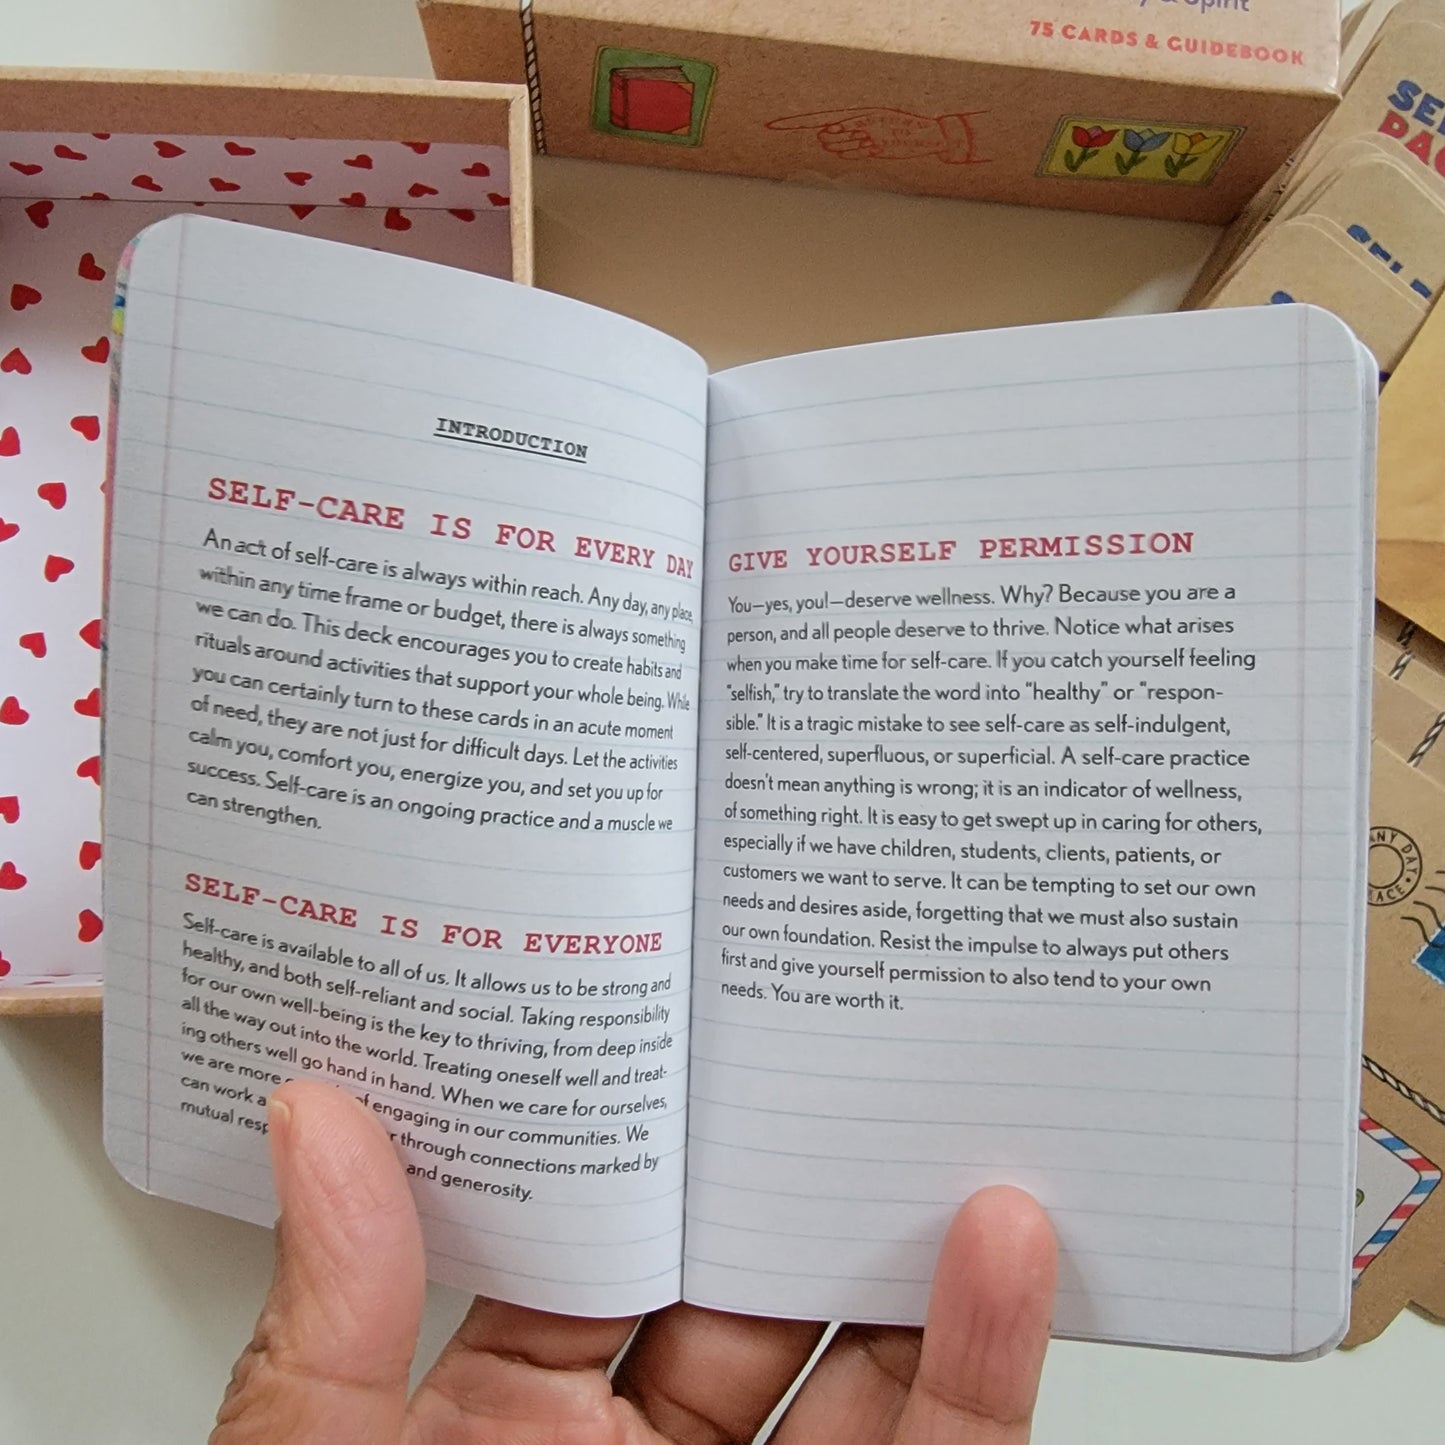 & Spirit
75 CARDS & GUIDEBOOK
INTRODUCTION
SELF-CARE IS FOR EVERY DAY
An act of self-care is always within reach. Any day, any place,
within any time frame or budget, there is always something
we can do. This deck encourages you to create habits and
rituals around activities that support your whole being. While
you can certainly turn to these cards in an acute moment
of need, they are not just for difficult days. Let the activities
calm you, comfort you, energize you, and set you up for
success. Self-care is an ongoing practice and a muscle we
can strengthen.
SELF-CARE IS FOR EVERYONE
Self-care is available to all of us. It allows us to be strong and
healthy, and both self-reliant and social. Taking responsibility
for our own well-being is the key to thriving, from deep inside
all the way out into the world. Treating oneself well and treat-
ing others well go hand in hand. When we care for ourselves,
we are more of engaging in our communities. We
can work through connections marked by
mutual and generosity.
GIVE YOURSELF PERMISSION
You—yes, you!—deserve wellness. Why? Because you are a
person, and all people deserve to thrive. Notice what arises
when you make time for self-care. If you catch yourself feeling
"selfish," try to translate the word into "healthy" or "respon-
sible." It is a tragic mistake to see self-care as self-indulgent,
self-centered, superfluous, or superficial. A self-care practice
doesn't mean anything is wrong; it is an indicator of wellness,
of something right. It is easy to get swept up in caring for others,
especially if we have children, students, clients, patients, or
customers we want to serve. It can be tempting to set our own
needs and desires aside, forgetting that we must also sustain
our own foundation. Resist the impulse to always put others
first and give yourself permission to also tend to your own
needs. You are worth it.